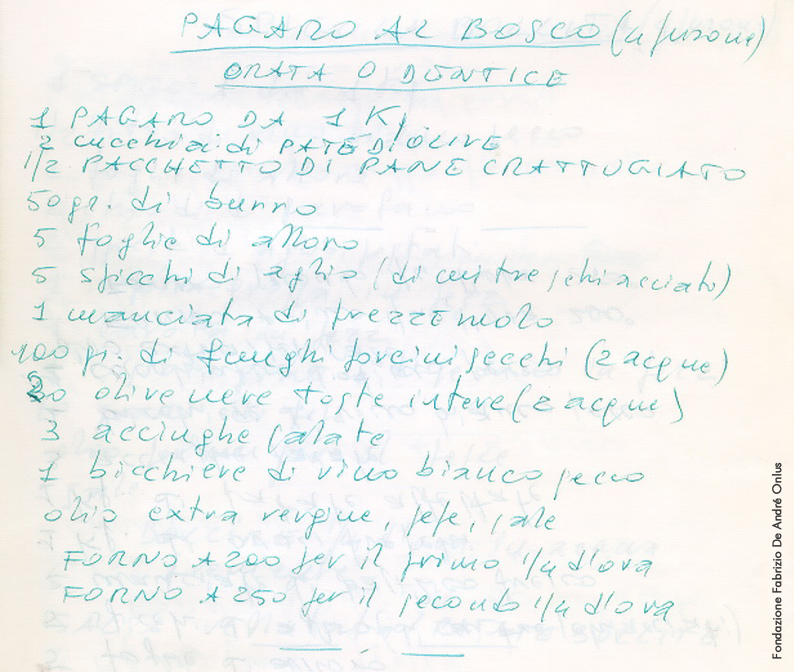 PAGARO AL BOSCO (4 persone)
ORATA O DENTICE
1 PAGARO DA 1 Kg
2 cucchiai di PATE D'OLIVE
1/2 PACCHETTO DI PANE GRATTUGIATO
50 gr. di burro
5 foglie di alloro
5 spicchi di aglio (di cui tre schiacciati)
1 manciata di prezzemolo
100 gr. di funghi porcini secchi (2 acque)
20 olive nere toste intere (2 acque)
3 acciughe salate
1 bicchiere di vino bianco secco
olio extra vergine, pepe, sale
FORNO A 200 per il primo 1/4 d'ora
FORNO A 250 per il secondo 1/4 d'ora
Fondazione Fabrizio De André Onlus